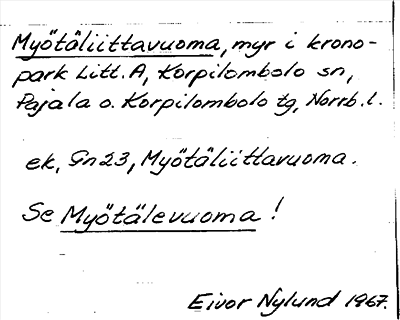 Myötäliittavuoma, myr i krono-
park Litt. A, Korpilombolo sn,
Pajala o. Korpilombolo tg, Norrb. l.
ek, Gn23, Myötäliittavuoma.
Se Myötälevuoma !
Eivor Nylund 1967.